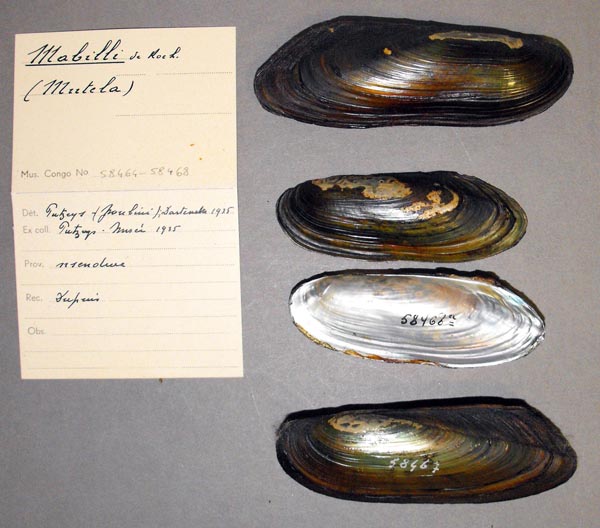 Mabilli de Roch.
(Mutela)
Mus. Congo No 58464-58468
Dét. Putzeys (Joubini), Dartevelle 1935
Ex coll. Putzeys - Musée 1935
Prov. nsendwe
Rec. Dupuis
Obs.
58466a
58467